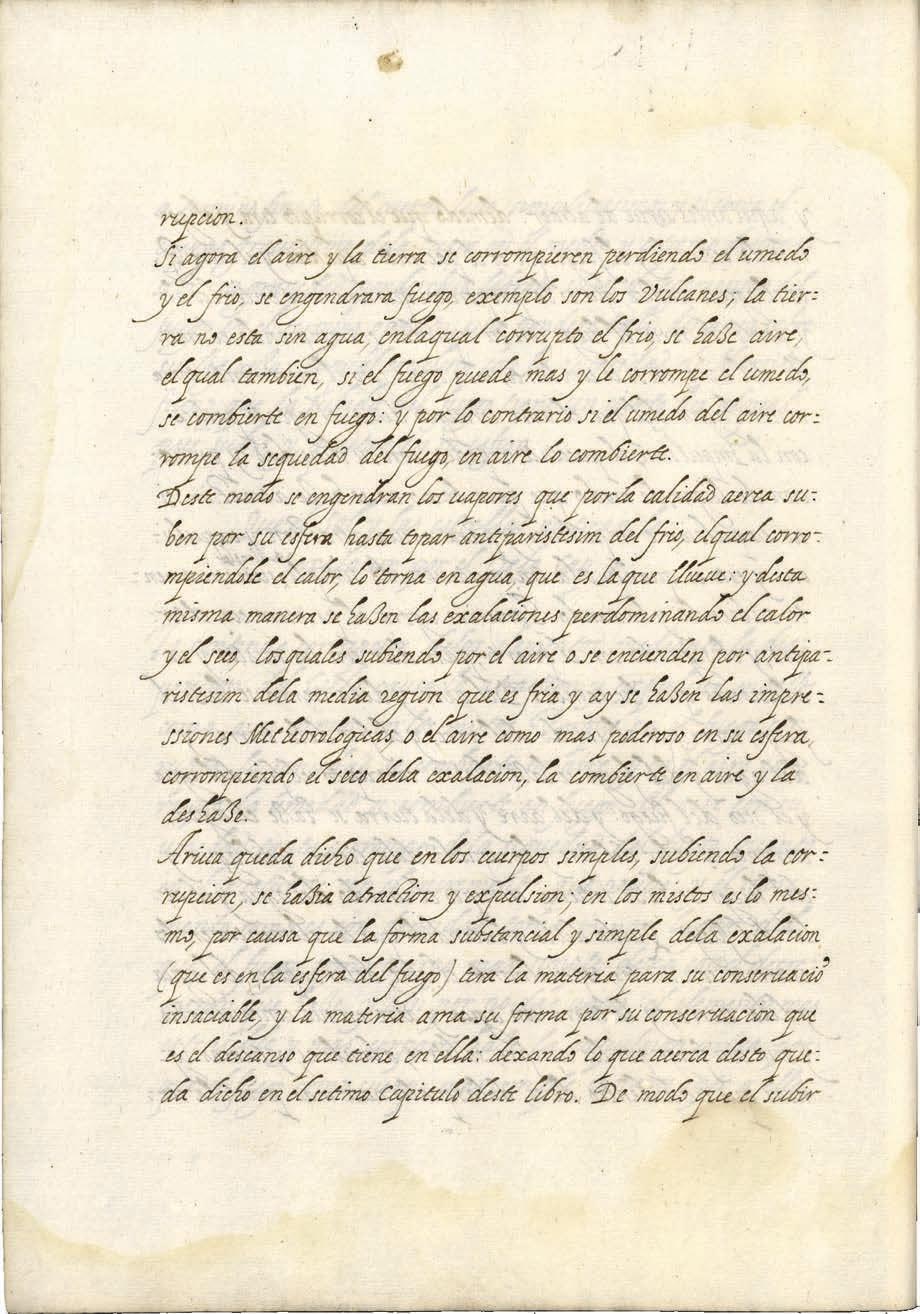 rupcion.
Si agora el aire y la tierra se corrompieren perdiendo el umedo
y el frio, se engendrara fuego, exemplo son los Vulcanes; la tier-
ra no esta sin agua, enlaqual corrupto el frio, se haße aire,
el qual tambien, si el fuego puede mas y le corrompe el umedo,
se combierte en fuego: y por lo contrario si el umedo del aire cor-
rompe la sequedad del fuego, en aire lo combierte.
Deste modo se engendran los vapores que por la calidad aerea su-
ben por su esfera hasta topar antiparistesim del frio, el qual corro-
mpiendole el calor, lo torna en agua que es la que llueve: y desta
misma manera se haßen las exalaciones perdominando el calor
y el seco, los quales subiendo por el aire o se encienden por antipa-
ristesim dela media region que es fria y ay se haßen las impre-
ssiones Metheorologicas, o el aire como mas poderoso en su esfera,
corrompiendo el seco dela exalacion, la combierte en aire y la
deshaße.
Ariva queda dicho que en los cuerpos simples, subiendo la cor-
rupcion, se haßia atraction y expulsion; en los mistos es lo mes-
mo, por causa que la forma substancial y simple dela exalacion
(que es en la esfera del fuego) tira la materia para su conservaciō
insaciable, y la materia ama su forma por su conservacion que
es el descanso que tiene en ella: dexando lo que acerca desto que-
da dicho en el setimo Capitulo deste libro. De modo que el subir